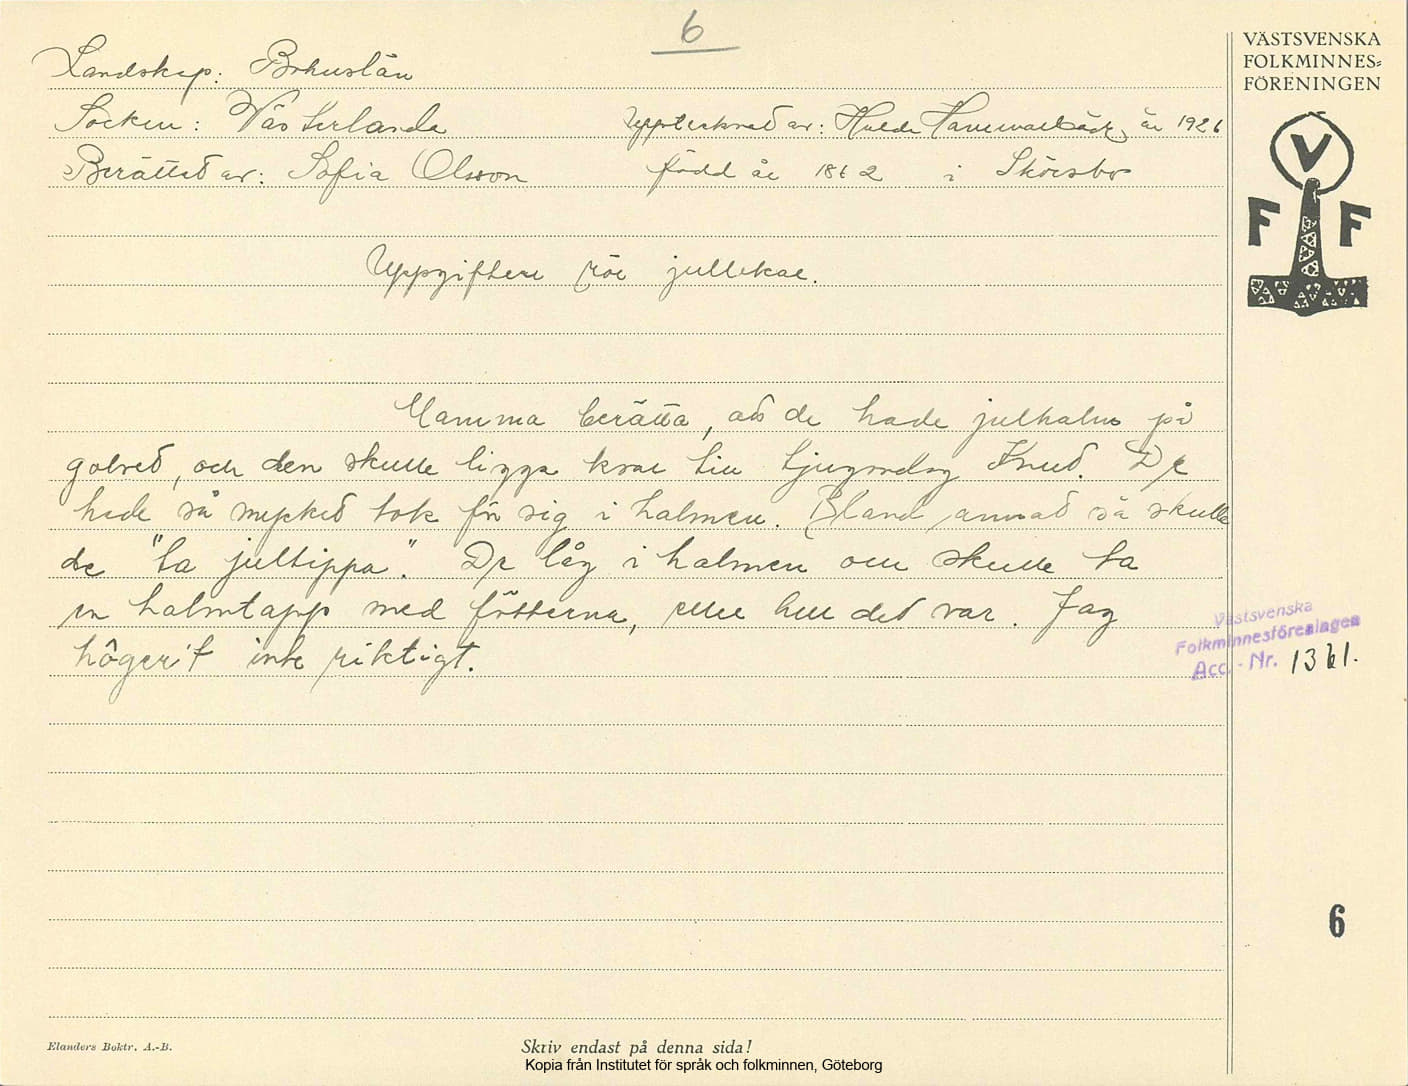 6
Landskap: Bohuslän
Socken: Västerlanda Upptecknat av: Hulda Hammarbäck år 1926
Berättat av: Sofia Olsson född år 1862 i Skörsbo
Uppgifter rör jullekar.
Mamma berätta, att de hade julhalm på
golvet, och den skulle ligga kvar till tjugondag Knut. De
hade så mycket tok för sig i halmen. Bland annat så skulle
de "ta jultippa". De låg i halmen och skulle ta
en halmtapp med fötterna, eller hur det var. Jag
inte riktigt.
VÄSTSVENSKA
FOLKMINNES=
FÖRENINGEN
V
F F
Västsvenska
Folkminnesföreningen
Acc. - Nr. 1361.
6
Elanders Boktr. A.-B.
Skriv endast på denna sida!
Kopia från Institutet för språk och folkminnen, Göteborg